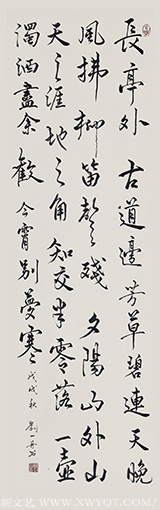 長亭外古道邊芳草碧連天晚
風拂柳笛聲殘夕陽山外山
天之涯地之角知交半零落一壺
濁酒盡余歡今宵別夢寒戊戌秋劉一
新文艺 WWW.XWYOT.COM